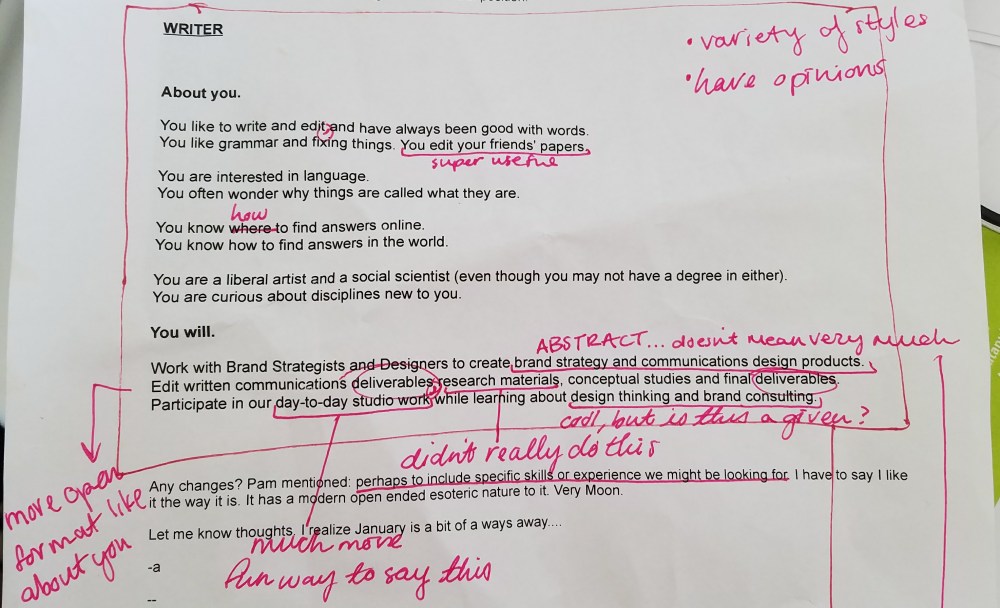 WRITER
• variety of styles
• have opinions
About you.
You like to write and edit, and have always been good with words.
You like grammar and fixing things. You edit your friends' papers.
super useful
You are interested in language.
You often wonder why things are called what they are.
how
You know where to find answers online.
You know how to find answers in the world.
You are a liberal artist and a social scientist (even though you may not have a degree in either).
You are curious about disciplines new to you.
You will.
ABSTRACT... doesn't mean very much
Work with Brand Strategists and Designers to create brand strategy and communications design products.
Edit written communications deliverables, research materials, conceptual studies and final deliverables.
Participate in our day-to-day studio work while learning about design thinking and brand consulting.
cool, but is this a given?
didn't really do this
more open
format like
about you
Any changes? Pam mentioned: perhaps to include specific skills or experience we might be looking for. I have to say I like
it the way it is. It has a modern open ended esoteric nature to it. Very Moon.
Let me know thoughts. I realize January is a bit of a ways away....
much more
fun way to say this
-a
--